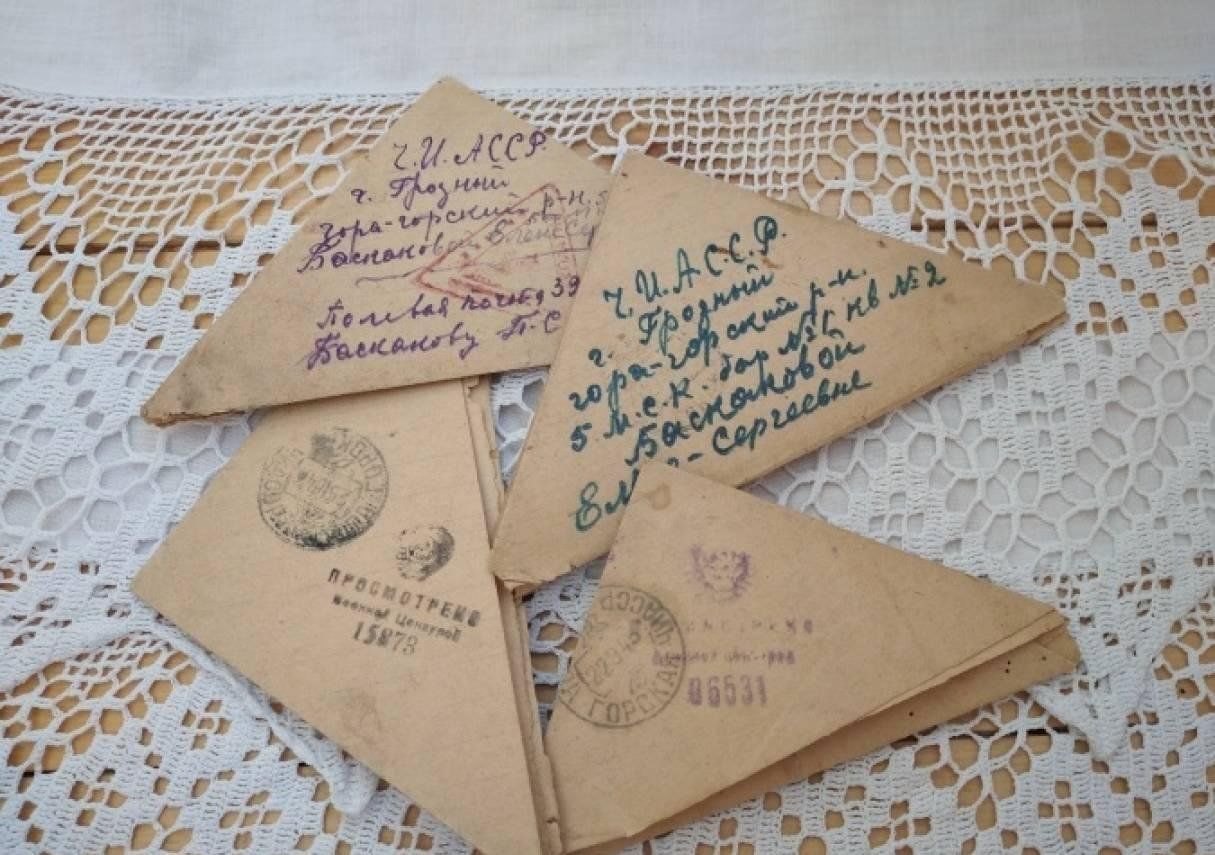 Ч.И.АССР
г. Грозный
гора-горский р-н.
Баскановой Елене Сер
Полевая почта 39
Басканову П.С
Ч.И.А.С.С.Р.
г. Грозный
гора-горский р-н.
5 м.с.к. бар №5 кв №2
Баскановой
Сергеевне
ПРОСМОТРЕНО
Военной Цензурой
15873
ГОРСКАЯ
06531